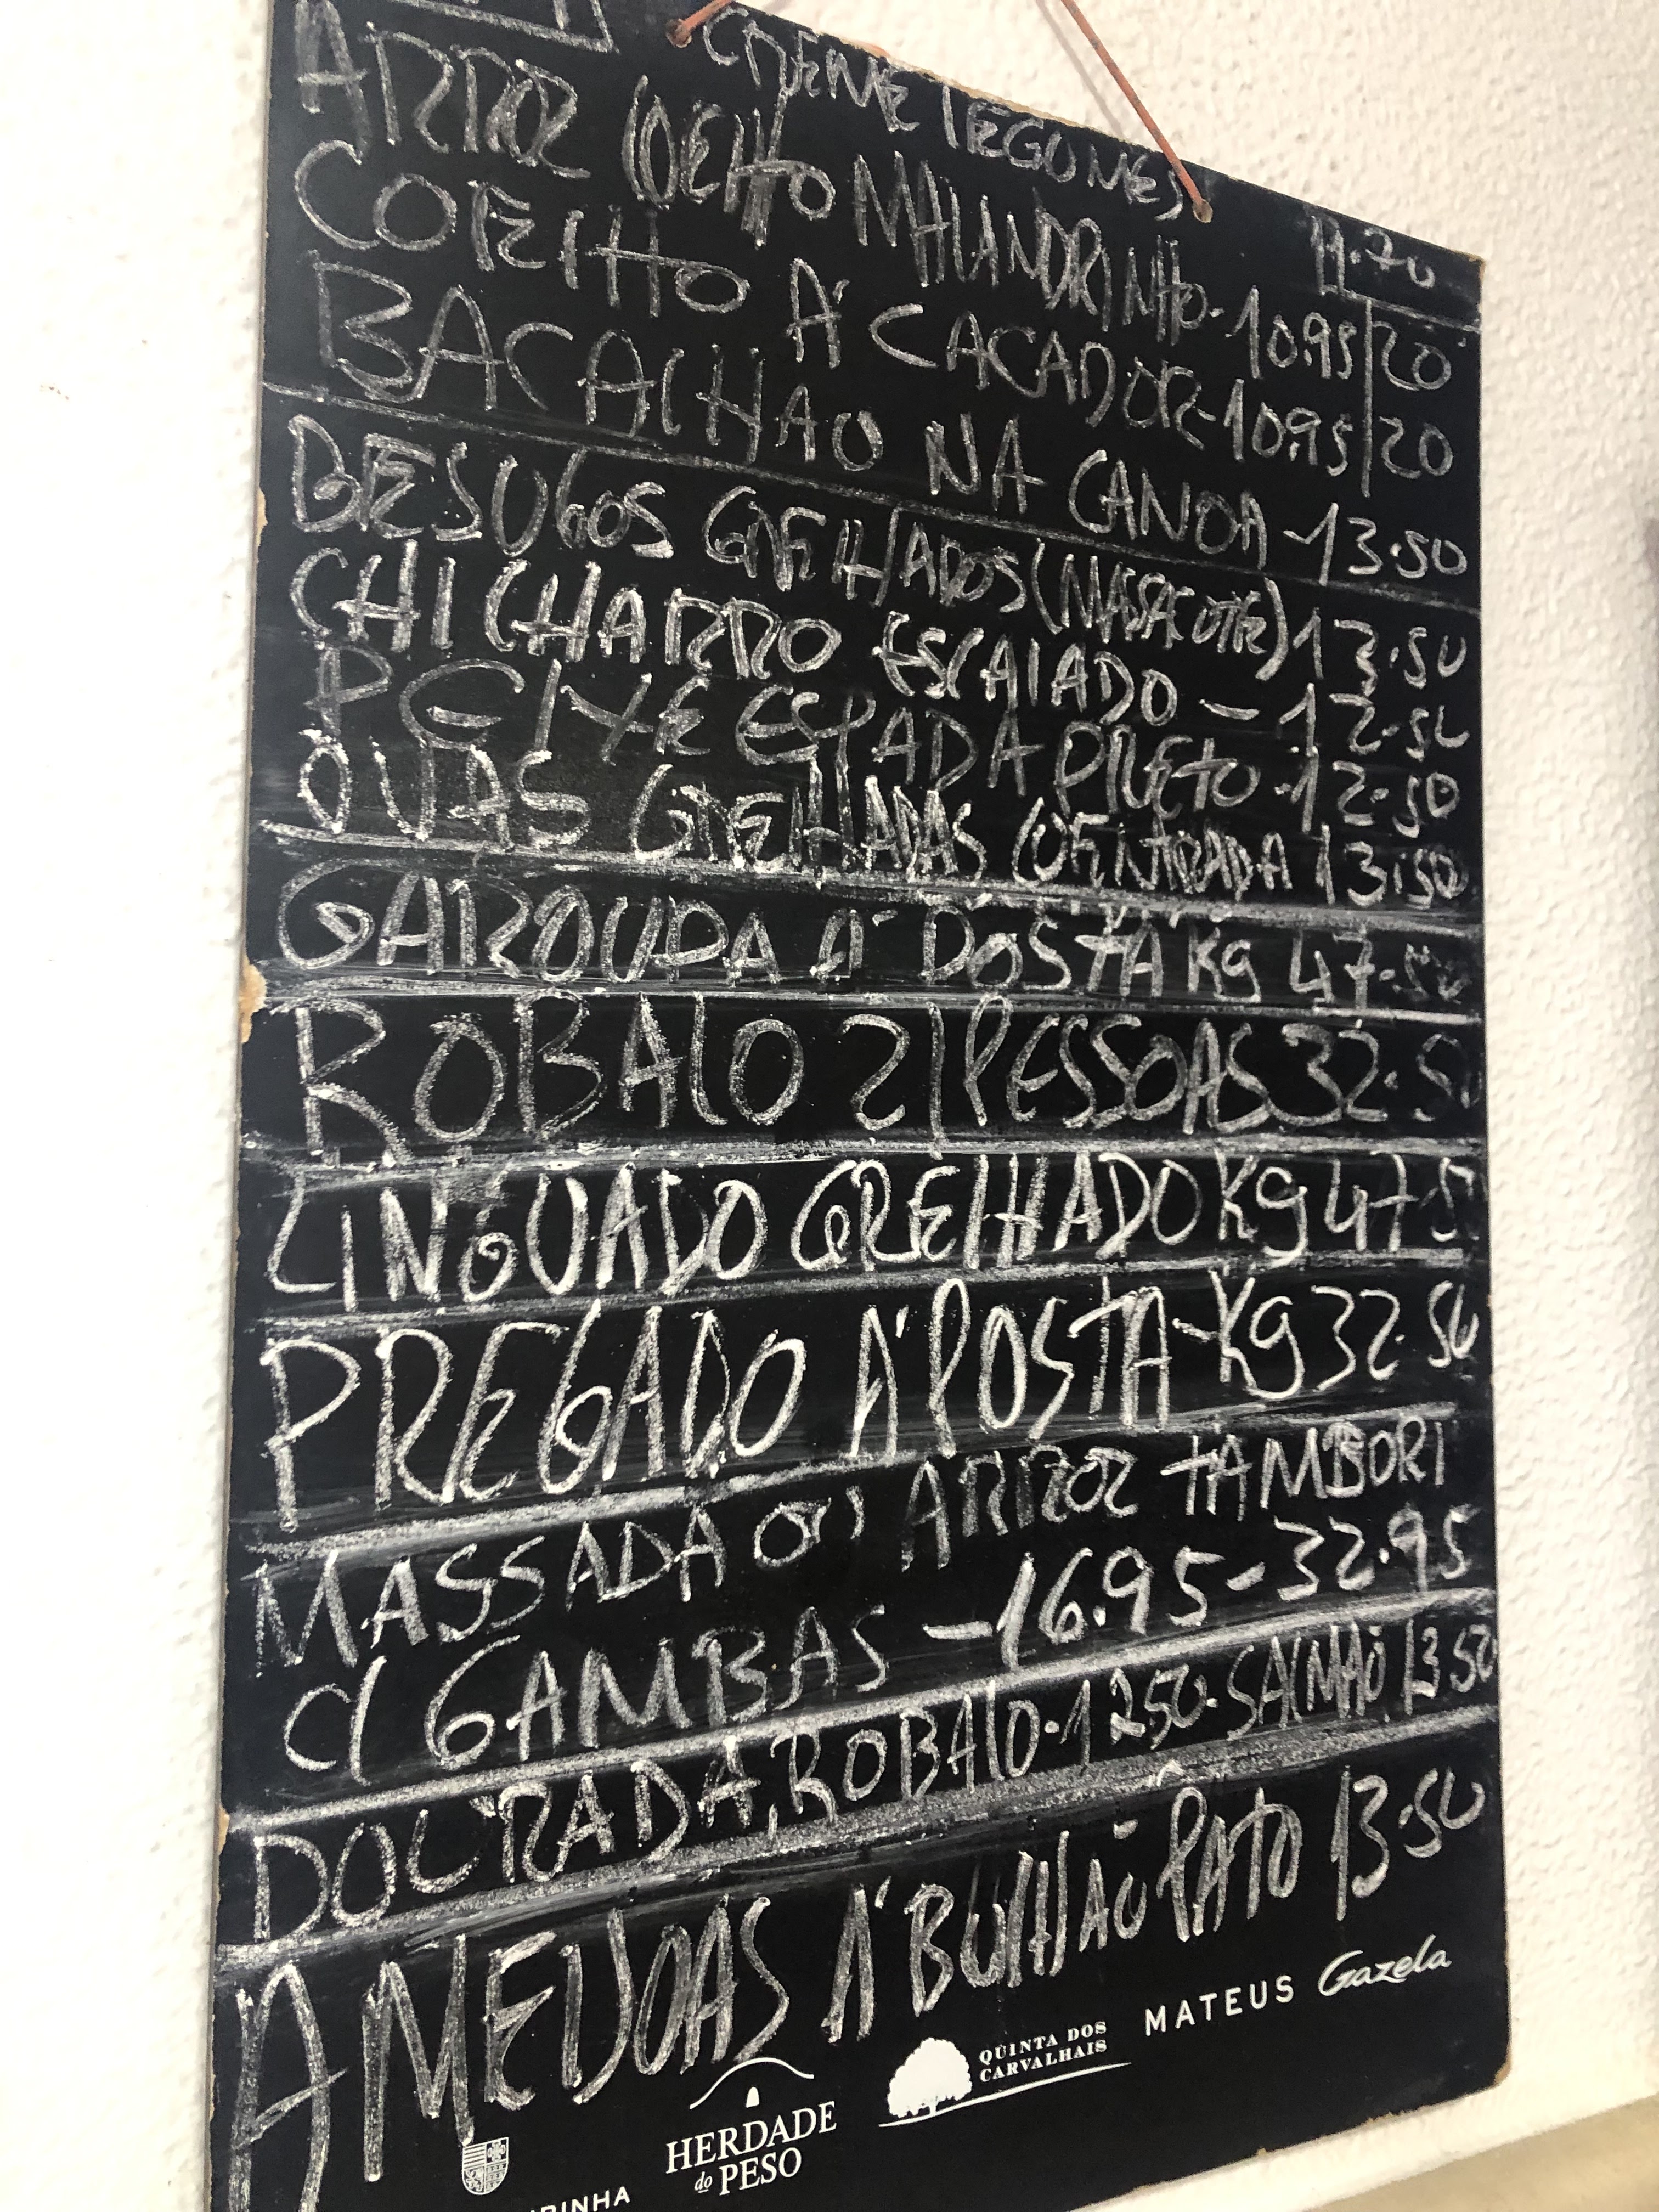 CREME LEGUMES
11.70
ARROZ COELHO MALANDRINHO - 10.95/20
COELHO Á CACADOR - 10.95/20
BACALHAO NA CANOA - 13.50
BESUGOS GRELHADOS (MASSACOTE) 13.50
CHICHARRO ESCALADO - 12.50
PEIXE ESPADA PRETO - 12.50
OVAS GRELHADAS COENTRADA 13.50
GAROUPA Á POSTA Kg 47.50
ROBALO 2/PESSOAS 32.50
LINGUADO GRELHADO Kg 47.5
PREGADO Á POSTA - Kg 32.50
MASSADA OU ARROZ TAMBORI
C/ GAMBAS - 16.95 - 32.95
DOURADA, ROBALO - 1250 - SALMÃO 13.50
AMEIJOAS Á BULHÃO PATO 13.50
HERDADE do PESO
QUINTA DOS CARVALHAIS
MATEUS
Gazela